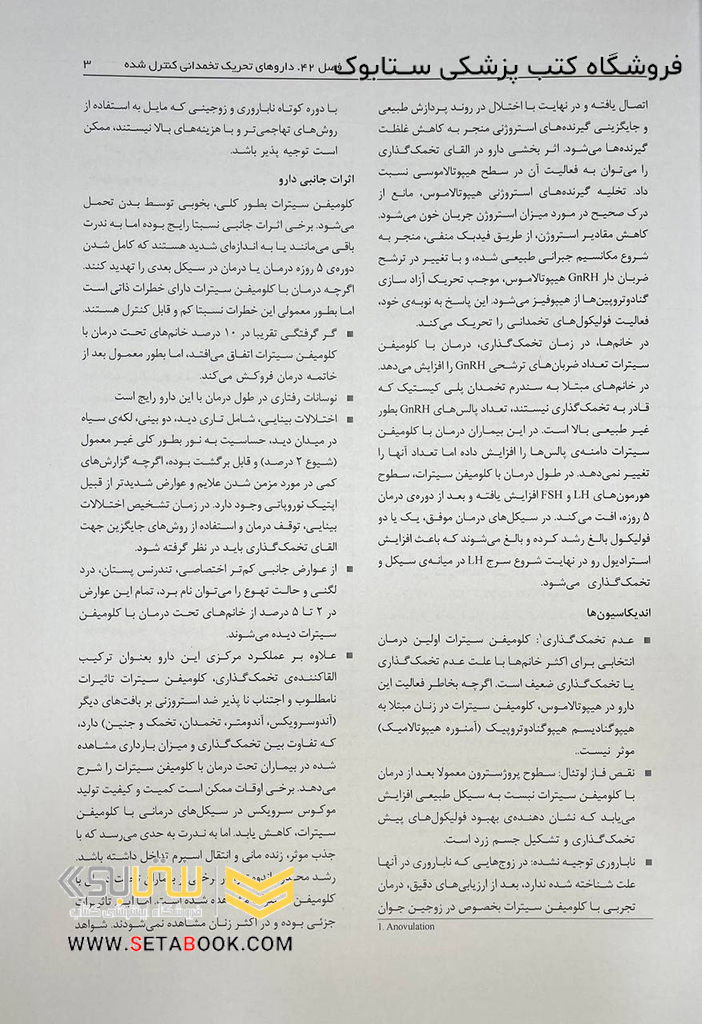 فروشگاه کتب پزشکی ستابوک
فصل ۴۲. داروهای تحریک تخمدانی کنترل شده ۳
اتصال یافته و در نهایت با اختلال در روند پردازش طبیعی
و جایگزینی گیرنده‌های استروژنی منجر به کاهش غلظت
گیرنده‌ها می‌شود. اثر بخشی دارو در القای تخمک‌گذاری
را می‌توان به فعالیت آن در سطح هیپوتالاموسی نسبت
داد. تخلیه گیرنده‌های استروژنی هیپوتالاموس، مانع از
درک صحیح در مورد میزان استروژن جریان خون می‌شود.
کاهش مقادیر استروژن، از طریق فیدبک منفی، منجر به
شروع مکانسیم جبرانی طبیعی شده، و با تغییر در ترشح
ضربان دار GnRH هیپوتالاموس، موجب تحریک آزاد سازی
گنادوتروپین‌ها از هیپوفیز می‌شود. این پاسخ به نوبه‌ی خود،
فعالیت فولیکول‌های تخمدانی را تحریک می‌کند.
در خانم‌ها، در زمان تخمک‌گذاری، درمان با کلومیفن
سیترات تعداد ضربان‌های ترشحی GnRH را افزایش می‌دهد.
در خانم‌های مبتلا به سندرم تخمدان پلی کیستیک که
قادر به تخمک‌گذاری نیستند، تعداد پالس‌های GnRH بطور
غیر طبیعی بالا است. در این بیماران درمان با کلومیفن
سیترات دامنه‌ی پالس‌ها را افزایش داده اما تعداد آنها را
تغییر نمی‌دهد. در طول درمان با کلومیفن سیترات، سطوح
هورمون‌های LH و FSH افزایش یافته و بعد از دوره‌ی درمان
۵ روزه، افت می‌کند. در سیکل‌های درمان موفق، یک یا دو
فولیکول بالغ رشد کرده و بالغ می‌شوند که باعث افزایش
استرادیول رو در نهایت شروع سرج LH در میانه‌ی سیکل و
تخمک‌گذاری می‌شود.
اندیکاسیون‌ها
■ عدم تخمک‌گذاری¹: کلومیفن سیترات اولین درمان
انتخابی برای اکثر خانم‌ها با علت عدم تخمک‌گذاری
یا تخمک‌گذاری ضعیف است. اگرچه بخاطر فعالیت این
دارو در هیپوتالاموس، کلومیفن سیترات در زنان مبتلا به
هیپوگنادیسم هیپوگنادوتروپیک (آمنوره هیپوتالامیک)
موثر نیست..
■ نقص فاز لوتئال: سطوح پروژسترون معمولا بعد از درمان
با کلومیفن سیترات نبست به سیکل طبیعی افزایش
می‌یابد که نشان دهنده‌ی بهبود فولیکول‌های پیش
تخمک‌گذاری و تشکیل جسم زرد است.
■ ناباروری توجیه نشده: در زوج‌هایی که ناباروری در آنها
علت شناخته شده ندارد، بعد از ارزیابی‌های دقیق، درمان
تجربی با کلومیفن سیترات بخصوص در زوجین جوان
1. Anovulation
با دوره کوتاه ناباروری و زوجینی که مایل به استفاده از
روش‌های تهاجمی‌تر و با هزینه‌های بالا نیستند، ممکن
است توجیه پذیر باشد.
اثرات جانبی دارو
کلومیفن سیترات بطور کلی، بخوبی توسط بدن تحمل
می‌شود. برخی اثرات جانبی نسبتا رایج بوده اما به ندرت
باقی می‌مانند یا به اندازه‌ای شدید هستند که کامل شدن
دوره‌ی ۵ روزه درمان یا درمان در سیکل بعدی را تهدید کنند.
اگرچه درمان با کلومیفن سیترات دارای خطرات ذاتی است
اما بطور معمولی این خطرات نسبتا کم و قابل کنترل هستند.
■ گر گرفتگی تقریبا در ۱۰ درصد خانم‌های تحت درمان با
کلومیفن سیترات اتفاق می‌افتد، اما بطور معمول بعد از
خاتمه درمان فروکش می‌کند.
■ نوسانات رفتاری در طول درمان با این دارو رایج است
■ اختلالات بینایی، شامل تاری دید، دو بینی، لکه‌ی سیاه
در میدان دید، حساسیت به نور بطور کلی غیر معمول
(شیوع ۲ درصد) و قابل برگشت بوده، اگرچه گزارش‌های
کمی در مورد مزمن شدن علایم و عوارض شدیدتر از قبیل
اپتیک نوروپاتی وجود دارد. در زمان تشخیص اختلالات
بینایی، توقف درمان و استفاده از روش‌های جایگزین جهت
القای تخمک‌گذاری باید در نظر گرفته شود.
■ از عوارض جانبی کم‌تر اختصاصی، تندرنس پستان، درد
لگنی و حالت تهوع را می‌توان نام برد، تمام این عوارض
در ۲ تا ۵ درصد از خانم‌های تحت درمان با کلومیفن
سیترات دیده می‌شوند.
■ علاوه بر عملکرد مرکزی این دارو بعنوان ترکیب
القاکننده‌ی تخمک‌گذاری، کلومیفن سیترات تاثیرات
نامطلوب و اجتناب نا پذیر ضد استروزنی بر بافت‌های دیگر
(آندوسرویکس، آندومتر، تخمدان، تخمک و جنین) دارد،
که تفاوت بین تخمک‌گذاری و میزان بارداری مشاهده
شده در بیماران تحت درمان با کلومیفن سیترات را شرح
می‌دهد. برخی اوقات ممکن است کمیت و کیفیت تولید
موکوس سرویکس در سیکل‌های درمانی با کلومیفن
سیترات، کاهش یابد. اما به ندرت به حدی می‌رسد که با
جذب موثر، زنده مانی و انتقال اسپرم تداخل داشته باشد.
رشد محدود اندومتر در برخی با
کلومیفن مشاهده شده است. اما این تاثیرات
جزئی بوده و در اکثر زنان مشاهده نمی‌شودند. شواهد
ستابوک
فروشگاه اینترنتی کتاب
WWW.SETABOOK.COM